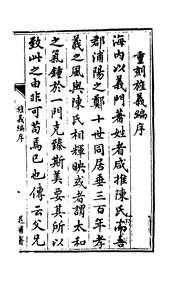 重刻旌義編序
海內以義門著姓者咸推陳氏而吾
郡浦陽之鄭十世同居垂三百年孝
義之風與陳氏相輝映或者謂太和
之氣鍾於一門克臻斯美要其所以
致此之由非可苟焉已也傳云父兄
旌義編序